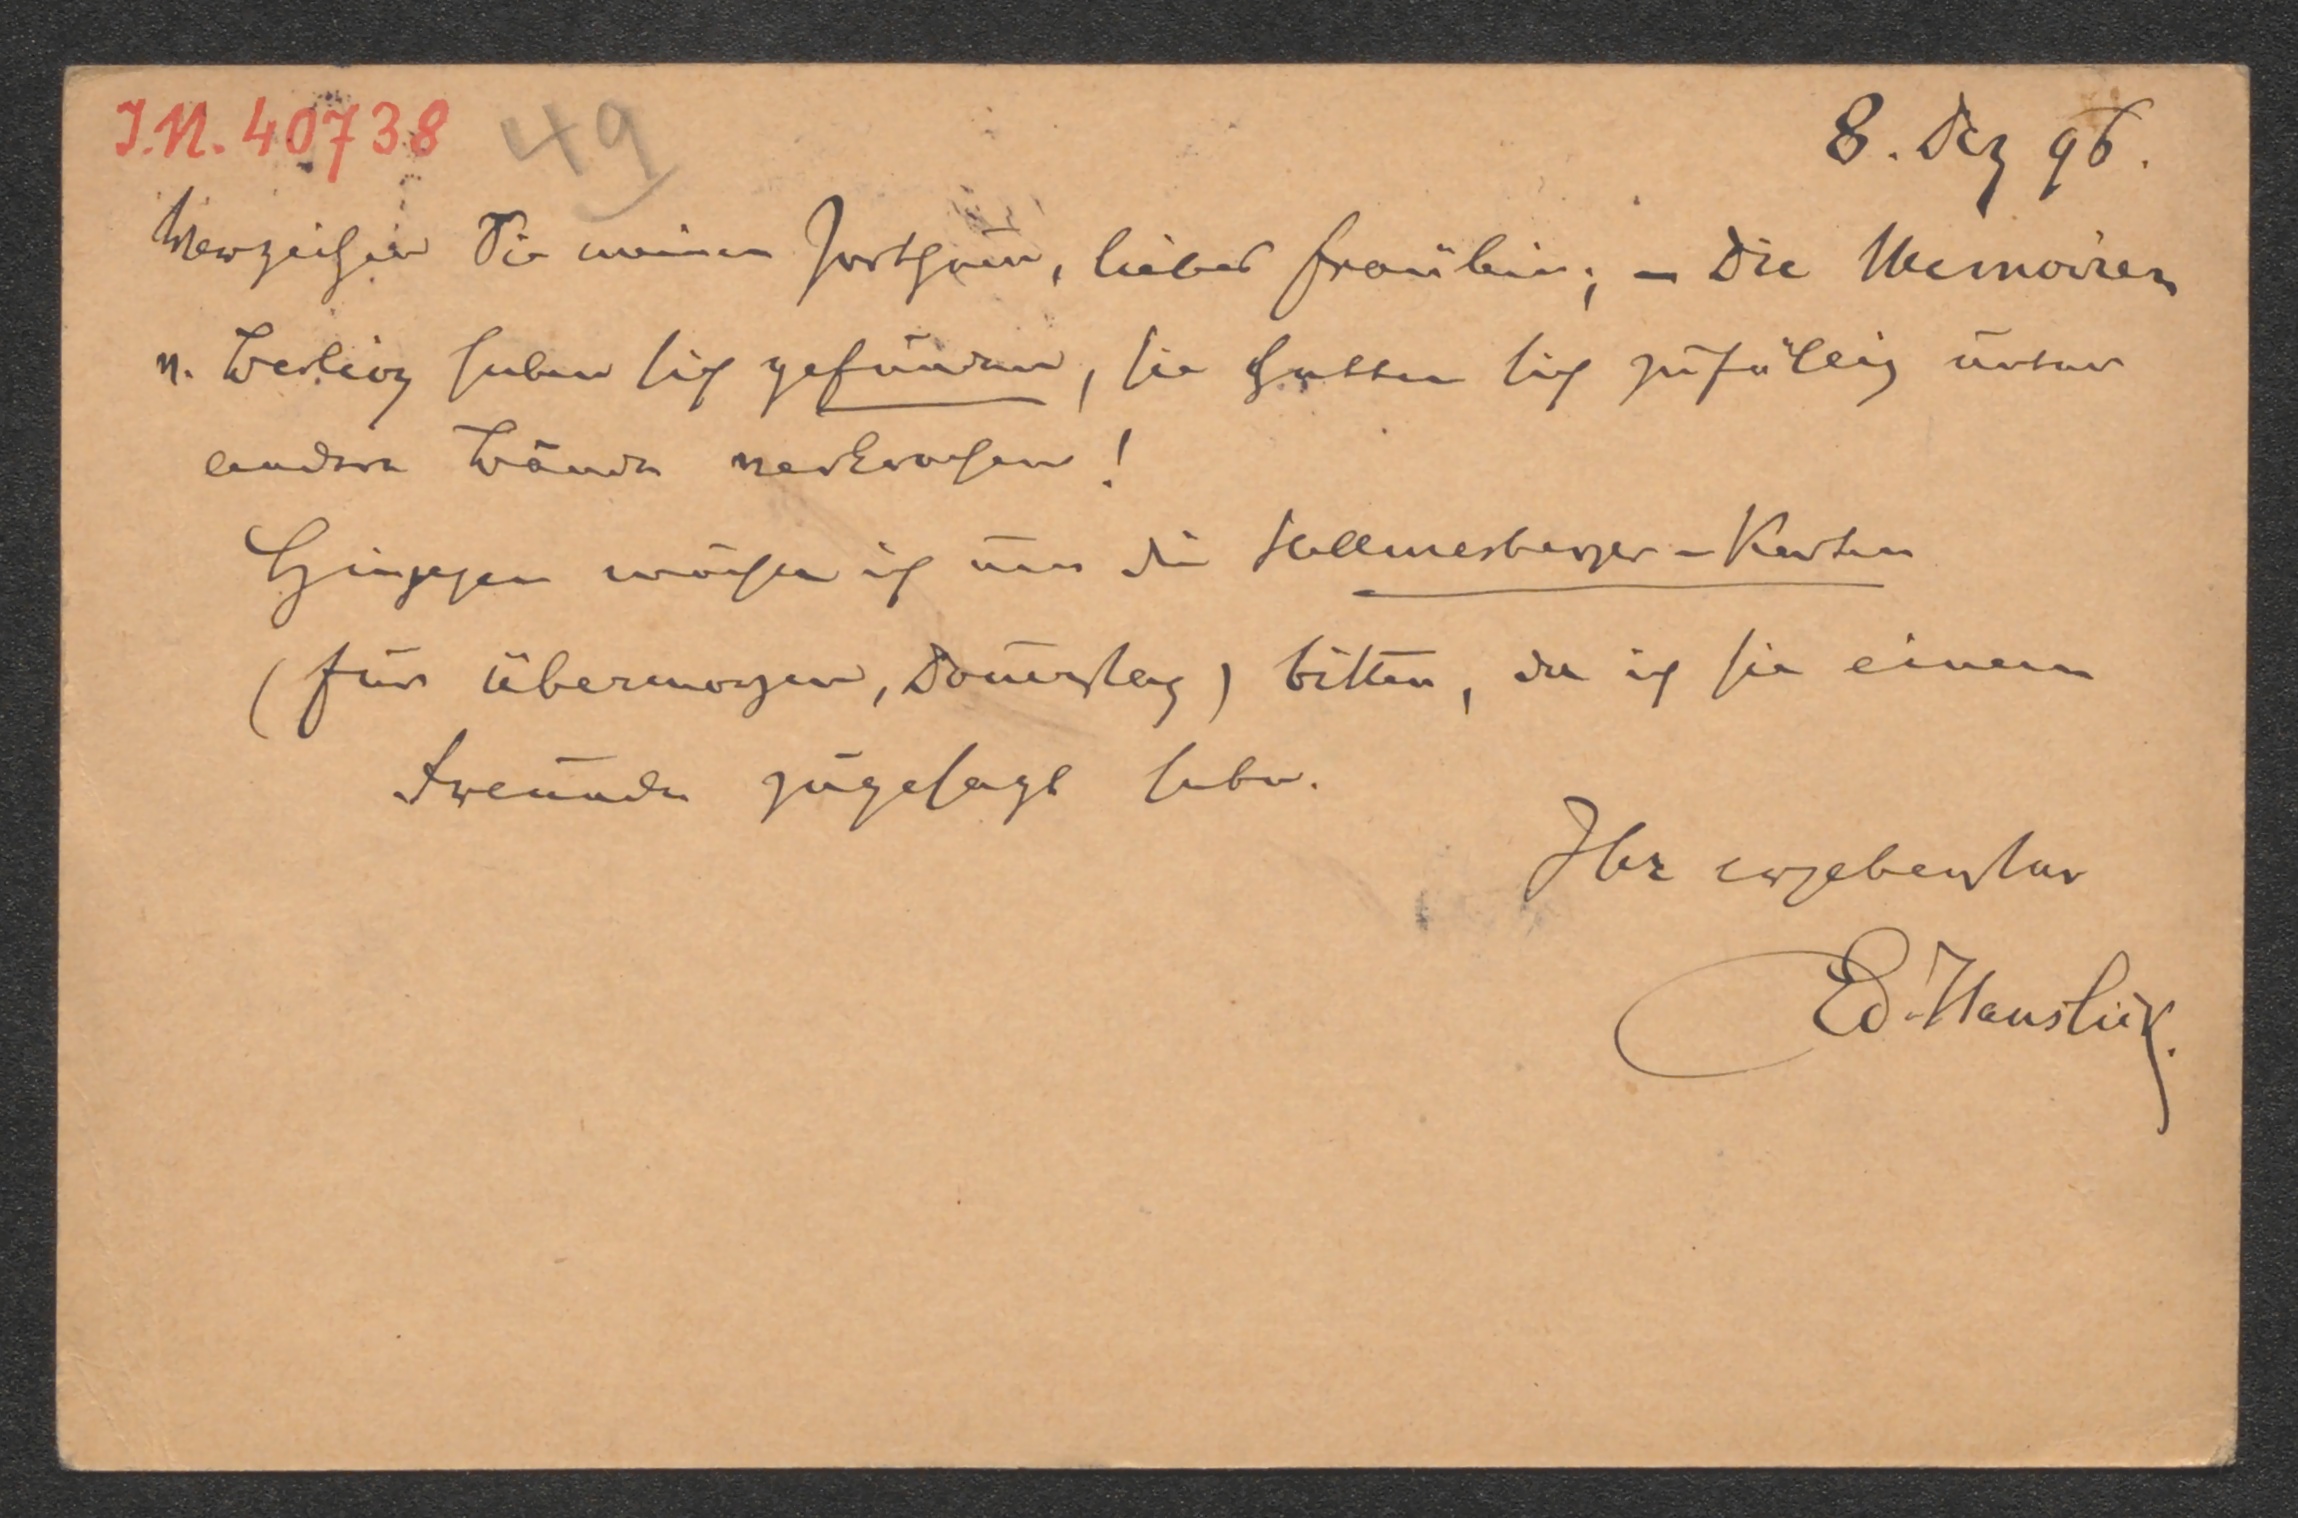 I.N. 40738 49 8. Dez 96.
Verzeihen Sie meinen Irrthum, liebes Fräulein; – Die Memoiren
v. Berlioz haben sich gefunden, sie hatten sich zufällig unter
andere Bände verkrochen!
Hingegen möchte ich um die Hellmesberger-Karten
(für übermorgen, Donnerstag) bitten, da ich sie einem
Freunde zugesagt habe.
Ihr ergebenster
Ed. Hanslick.